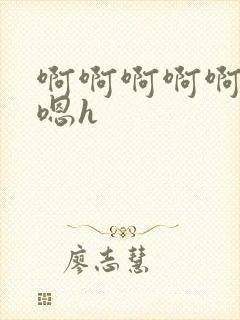 啊啊啊啊啊
嗯h
廖志慧